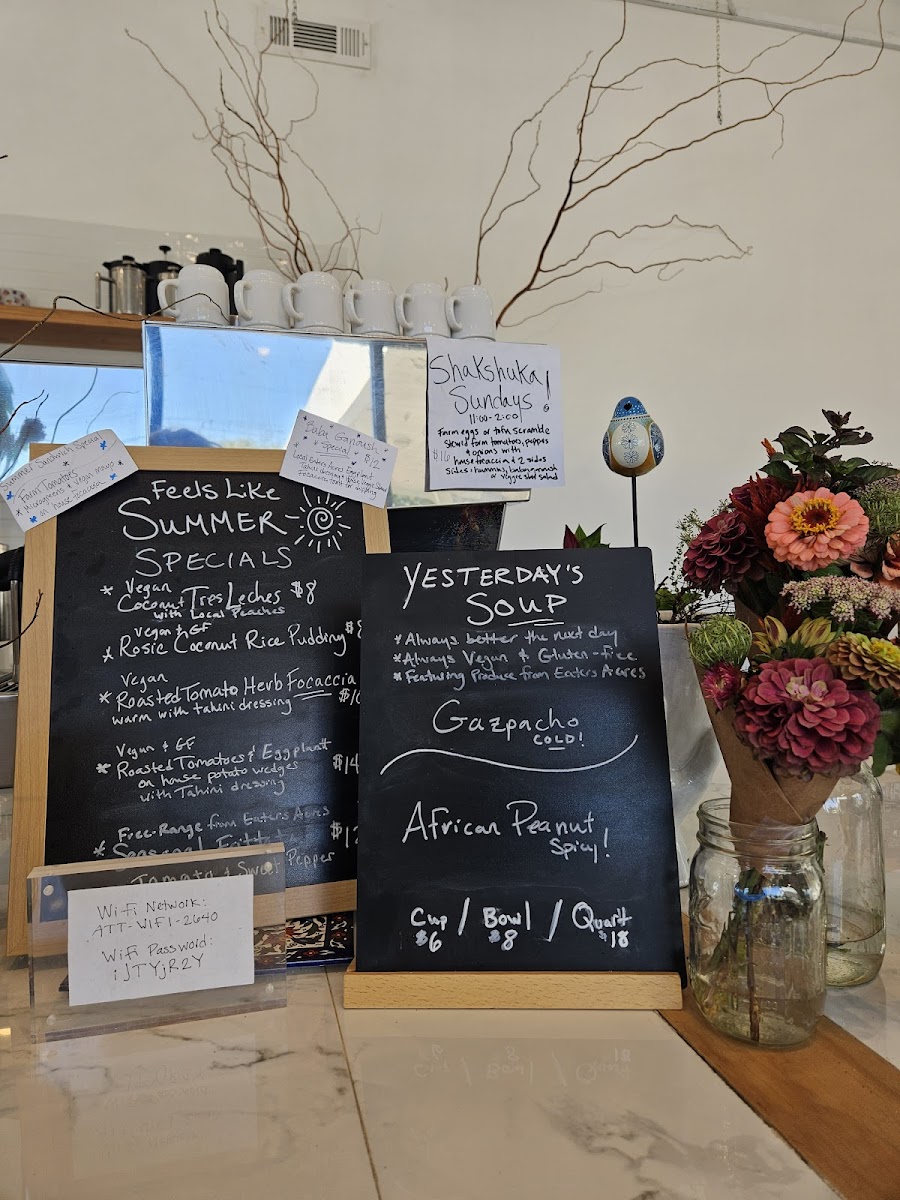 Summer Sandwich Special
Farm Tomatoes
Microgreens & Vegan Mayo
on house focaccia
Baby Ganoush
Special
$12
Local Eaters Acres Eggplant
Shakshuka
Sundays!
11:00-2:00
Farm eggs or tofu scramble
stewed farm tomatoes, peppers
& onions with
house focaccia & 2 sides
sides: hummus, baby ganoush
or veggie slad salad
Feels Like
SUMMER
SPECIALS
* Vegan
Coconut Tres Leches $8
with Local Peaches
Vegan & GF
* Rosie Coconut Rice Pudding $8
Vegan
* Roasted Tomato Herb Focaccia
warm with tahini dressing
Vegan & GF
* Roasted Tomatoes & Eggplant
on house potato wedges $14
with Tahini dressing
Free-Range from Eaters Acres
* Seasonal
Tomato & Sweet Pepper
YESTERDAY'S
SOUP
*Always better the next day
*Always Vegan & Gluten-free
*Featuring Produce from Eaters Acres
Gazpacho
COLD!
African Peanut
Spicy!
Cup / Bowl / Quart
$6 $8 $18
WiFi Network:
ATT-WIFI-2640
WiFi Password:
iJTYjR2Y